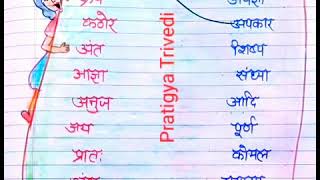 कठोर अपकार
अंत शिष्य
आज्ञा संध्या
अनुज आदि
अथ पूर्ण
प्रातः कोमल
Pratigya Trivedi